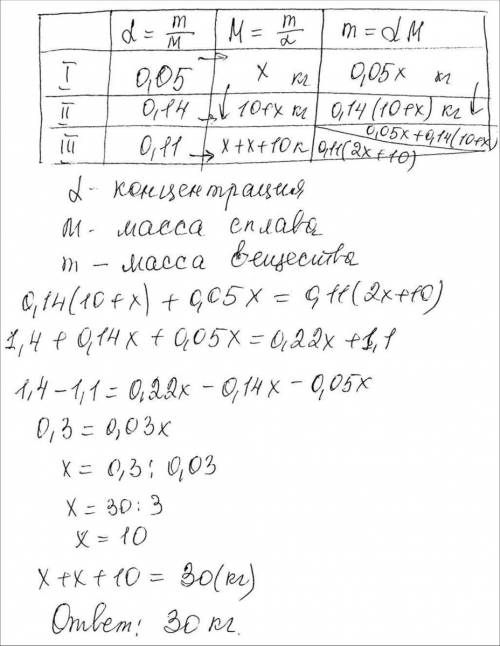 α = m/M M = m/α m = αM
I 0,05 x кг 0,05x кг
II 0,14 10+x кг 0,14(10+x) кг
III 0,11 x+x+10 к 0,05x+0,14(10+x) 0,11(2x+10)
α - концентрация
M - масса сплава
m - масса вещества
0,14(10+x) + 0,05x = 0,11(2x+10)
1,4 + 0,14x + 0,05x = 0,22x + 1,1
1,4 - 1,1 = 0,22x - 0,14x - 0,05x
0,3 = 0,03x
x = 0,3 : 0,03
x = 30 : 3
x = 10
x+x+10 = 30(кг)
Ответ: 30 кг.